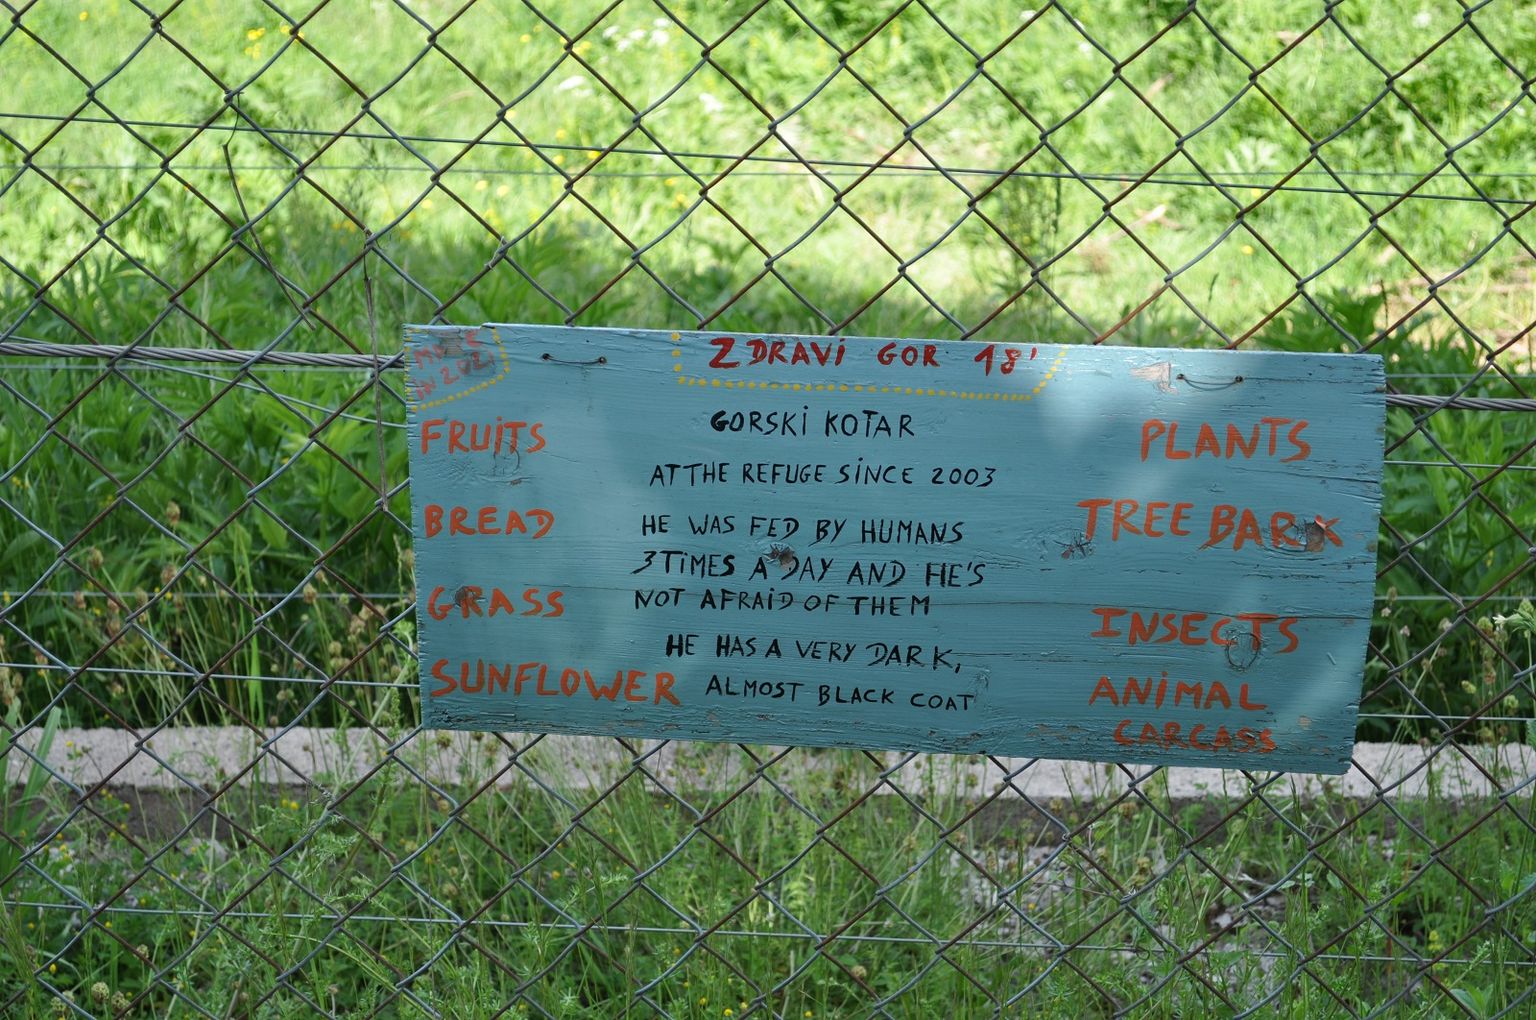 MADE
IN 2021
ZDRAVi GOR 18'
FRUiTS
BREAD
GRASS
SUNFLOWER
GORSKi KOTAR
AT THE REFUGE SiNCE 2003
HE WAS FED BY HUMANS
3 TiMES A DAY AND HE'S
NOT AFRAiD OF THEM
HE HAS A VERY DARK,
ALMOST BLACK COAT
PLANTS
TREE BARK
INSECTS
ANiMAL
CARCASS